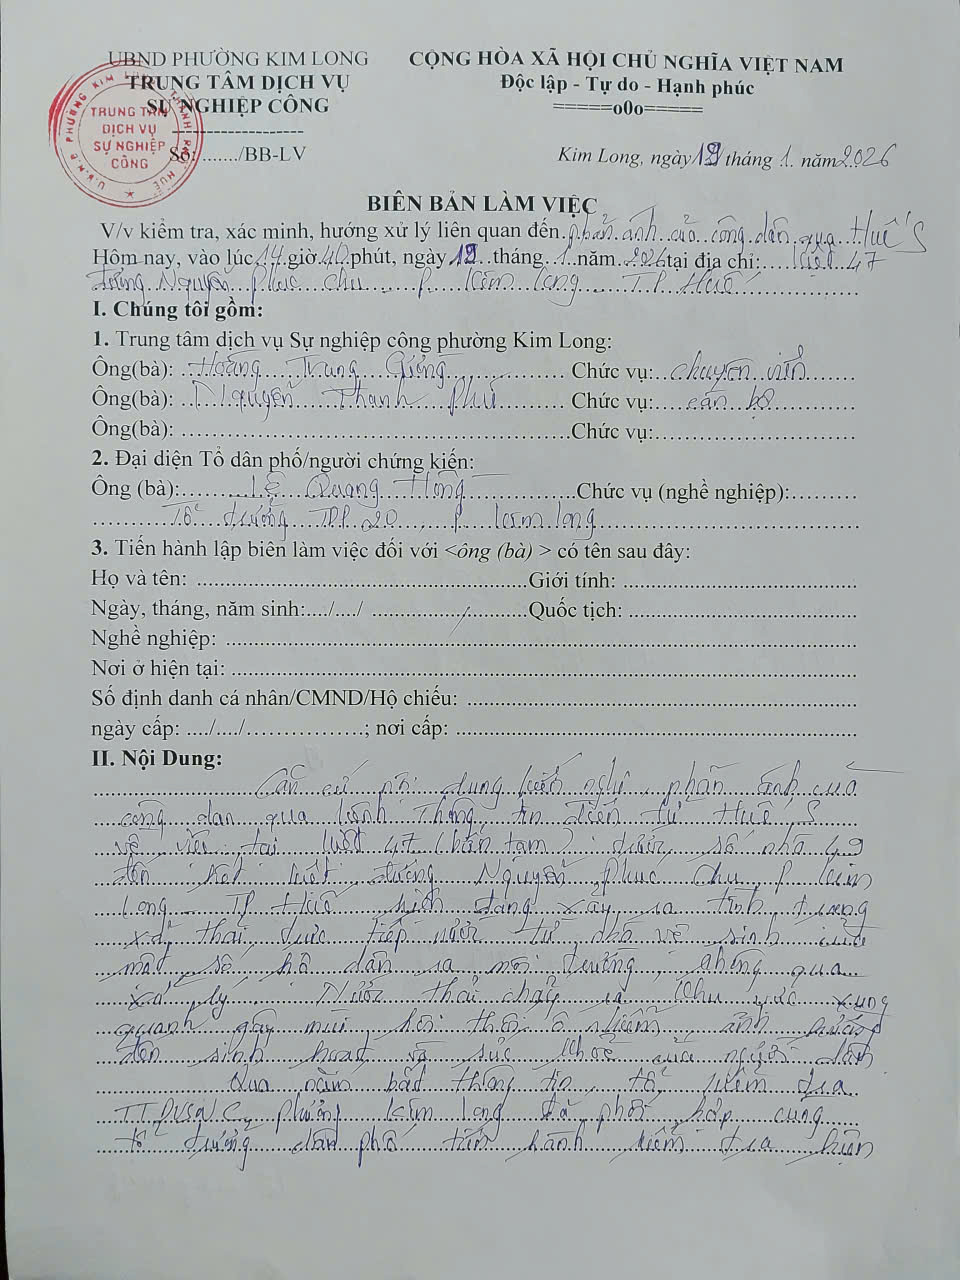 UBND PHƯỜNG KIM LONG
TRUNG TÂM DỊCH VỤ
SỰ NGHIỆP CÔNG
-------------------
Số: ....../BB-LV
CỘNG HÒA XÃ HỘI CHỦ NGHĨA VIỆT NAM
Độc lập - Tự do - Hạnh phúc
=====o0o=====
Kim Long, ngày 19 tháng 1. năm 2026
TRUNG TÂM
DỊCH VỤ
SỰ NGHIỆP
CÔNG
BIÊN BẢN LÀM VIỆC
V/v kiểm tra, xác minh, hướng xử lý liên quan đến phản ánh của công dân qua Huế S
Hôm nay, vào lúc 14 giờ 40 phút, ngày 19 tháng 1 năm 2026 tại địa chỉ: Kiệt 47
đường Nguyễn Phúc Chu, P. Kim Long, TP Huế
I. Chúng tôi gồm:
1. Trung tâm dịch vụ Sự nghiệp công phường Kim Long:
Ông(bà): Hoàng Trung Chức vụ: chuyên viên
Ông(bà): Nguyễn Thanh Phú Chức vụ: cán bộ
Ông(bà): Chức vụ:
2. Đại diện Tổ dân phố/người chứng kiến:
Ông (bà): Lê Quang Hồng Chức vụ (nghề nghiệp):
Tổ trưởng TDP 20, P. Kim Long
3. Tiến hành lập biên làm việc đối với <ông (bà) > có tên sau đây:
Họ và tên: Giới tính:
Ngày, tháng, năm sinh:..../..../ Quốc tịch:
Nghề nghiệp:
Nơi ở hiện tại:
Số định danh cá nhân/CMND/Hộ chiếu:
ngày cấp: ..../..../................; nơi cấp:
II. Nội Dung:
Căn cứ nội dung kiến nghị, phản ánh của
công dân qua kênh Thông tin điện tử Huế S
về việc tại kiệt 47 (bản tạm): dưới số nhà 49
đến hết kiệt đường Nguyễn Phúc Chu, P Kim
Long, TP Huế hiện đang xảy ra tình trạng
xả thải trực tiếp nước từ nhà vệ sinh của
một số hộ dân ra môi trường, không qua
xử lý. Nước thải chảy ra khu vực xung
quanh gây mùi hôi thối ô nhiễm, ảnh hưởng
đến sinh hoạt và sức khoẻ của người dân
Qua nắm bắt thông tin, tổ kiểm tra
TTDVSNC phường Kim Long đã phối hợp cùng
tổ trưởng dân phố tiến hành kiểm tra hiện